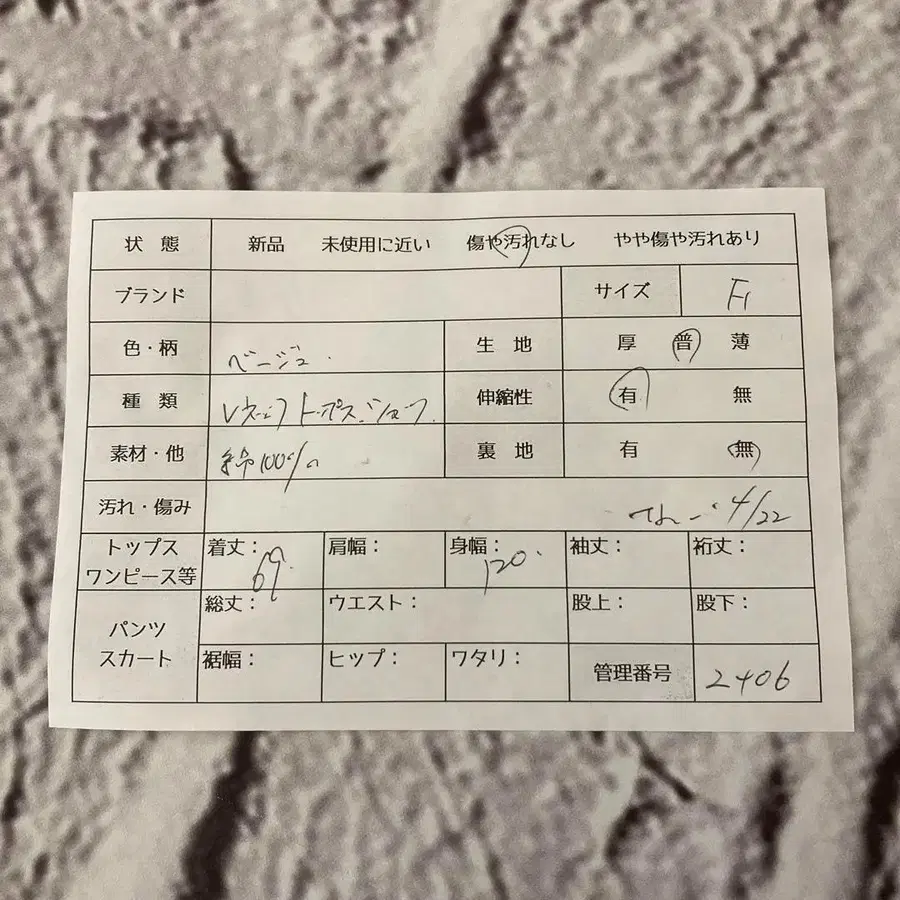 状 態 新品 未使用に近い 傷や汚れなし やや傷や汚れあり
ブランド サイズ F
色・柄 ベージュ. 生 地 厚 普 薄
種 類 Vネック トップス. 伸縮性 有 無
素材・他 綿100% 裏 地 有 無
汚れ・傷み なし 4/22
トップス ワンピース等 着丈: 69. 肩幅: 身幅: 120. 袖丈: 裄丈:
パンツ スカート 総丈: ウエスト: 股上: 股下:
裾幅: ヒップ: ワタリ: 管理番号 2406